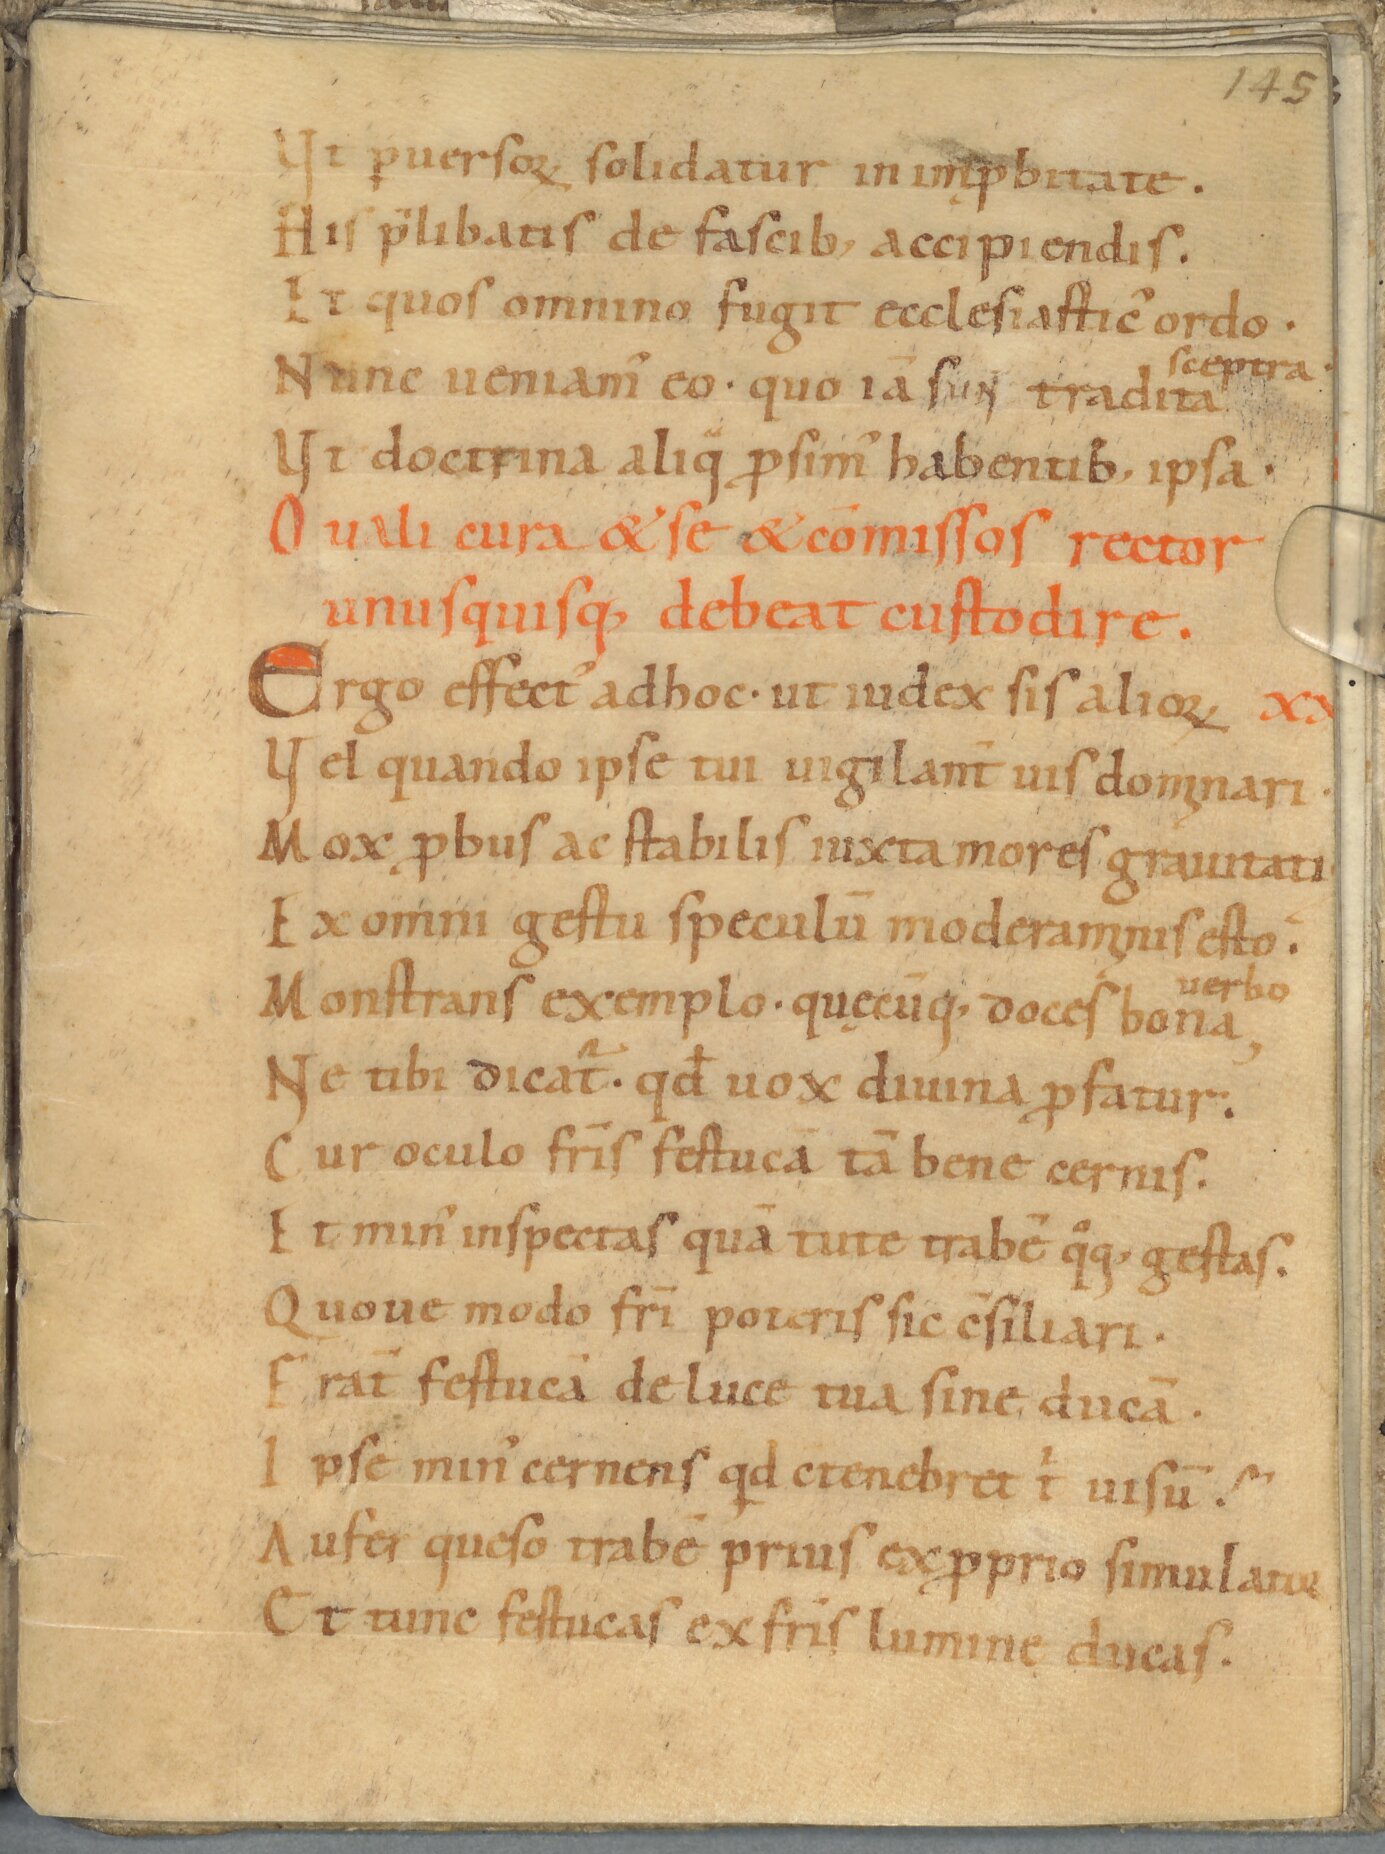 145
Ut ꝑuersoꝝ solidatur in imꝓbitate.
His p̄libatis de fascib; accipiendis.
Et quos omnino fugit ecclesiasticꝰ ordo.
Nunc ueniamꝰ eo. quo iā sun̄t tradita sceptra.
Ut doctrina aliqͣ ꝓsimꝰ habentib; ipsa.
Quali cura & se & cōmissos rector
unusquisq; debeat custodire.
Ergo effectꝰ ad hoc. ut iudex sis alioꝝ xx
Uel quando ipse tui uigilant̄ uis dominari.
Mox ꝓbus ac stabilis iuxta mores grauitati
Ex omni gestu speculū moderaminis esto.
Monstrans exemplo. quęcūq; doces bona uerbo,
Ne tibi dicat᷑. qđ uox diuina ꝓfatur.
Cur oculo fr̄is festucā tā bene cernis.
Et minꝰ inspectas quā tute trabē qͦq; gestas.
Quoue modo fr̄i poteris sic c̄siliari.
Frat̄ festucā de luce tua sine ducā.
Ipse minꝰ cernens qd ctenebret tͥ uisū.
Aufer queso trabē prius ex ꝓprio simulator
Et tunc festucas ex fr̄is lumine ducas.